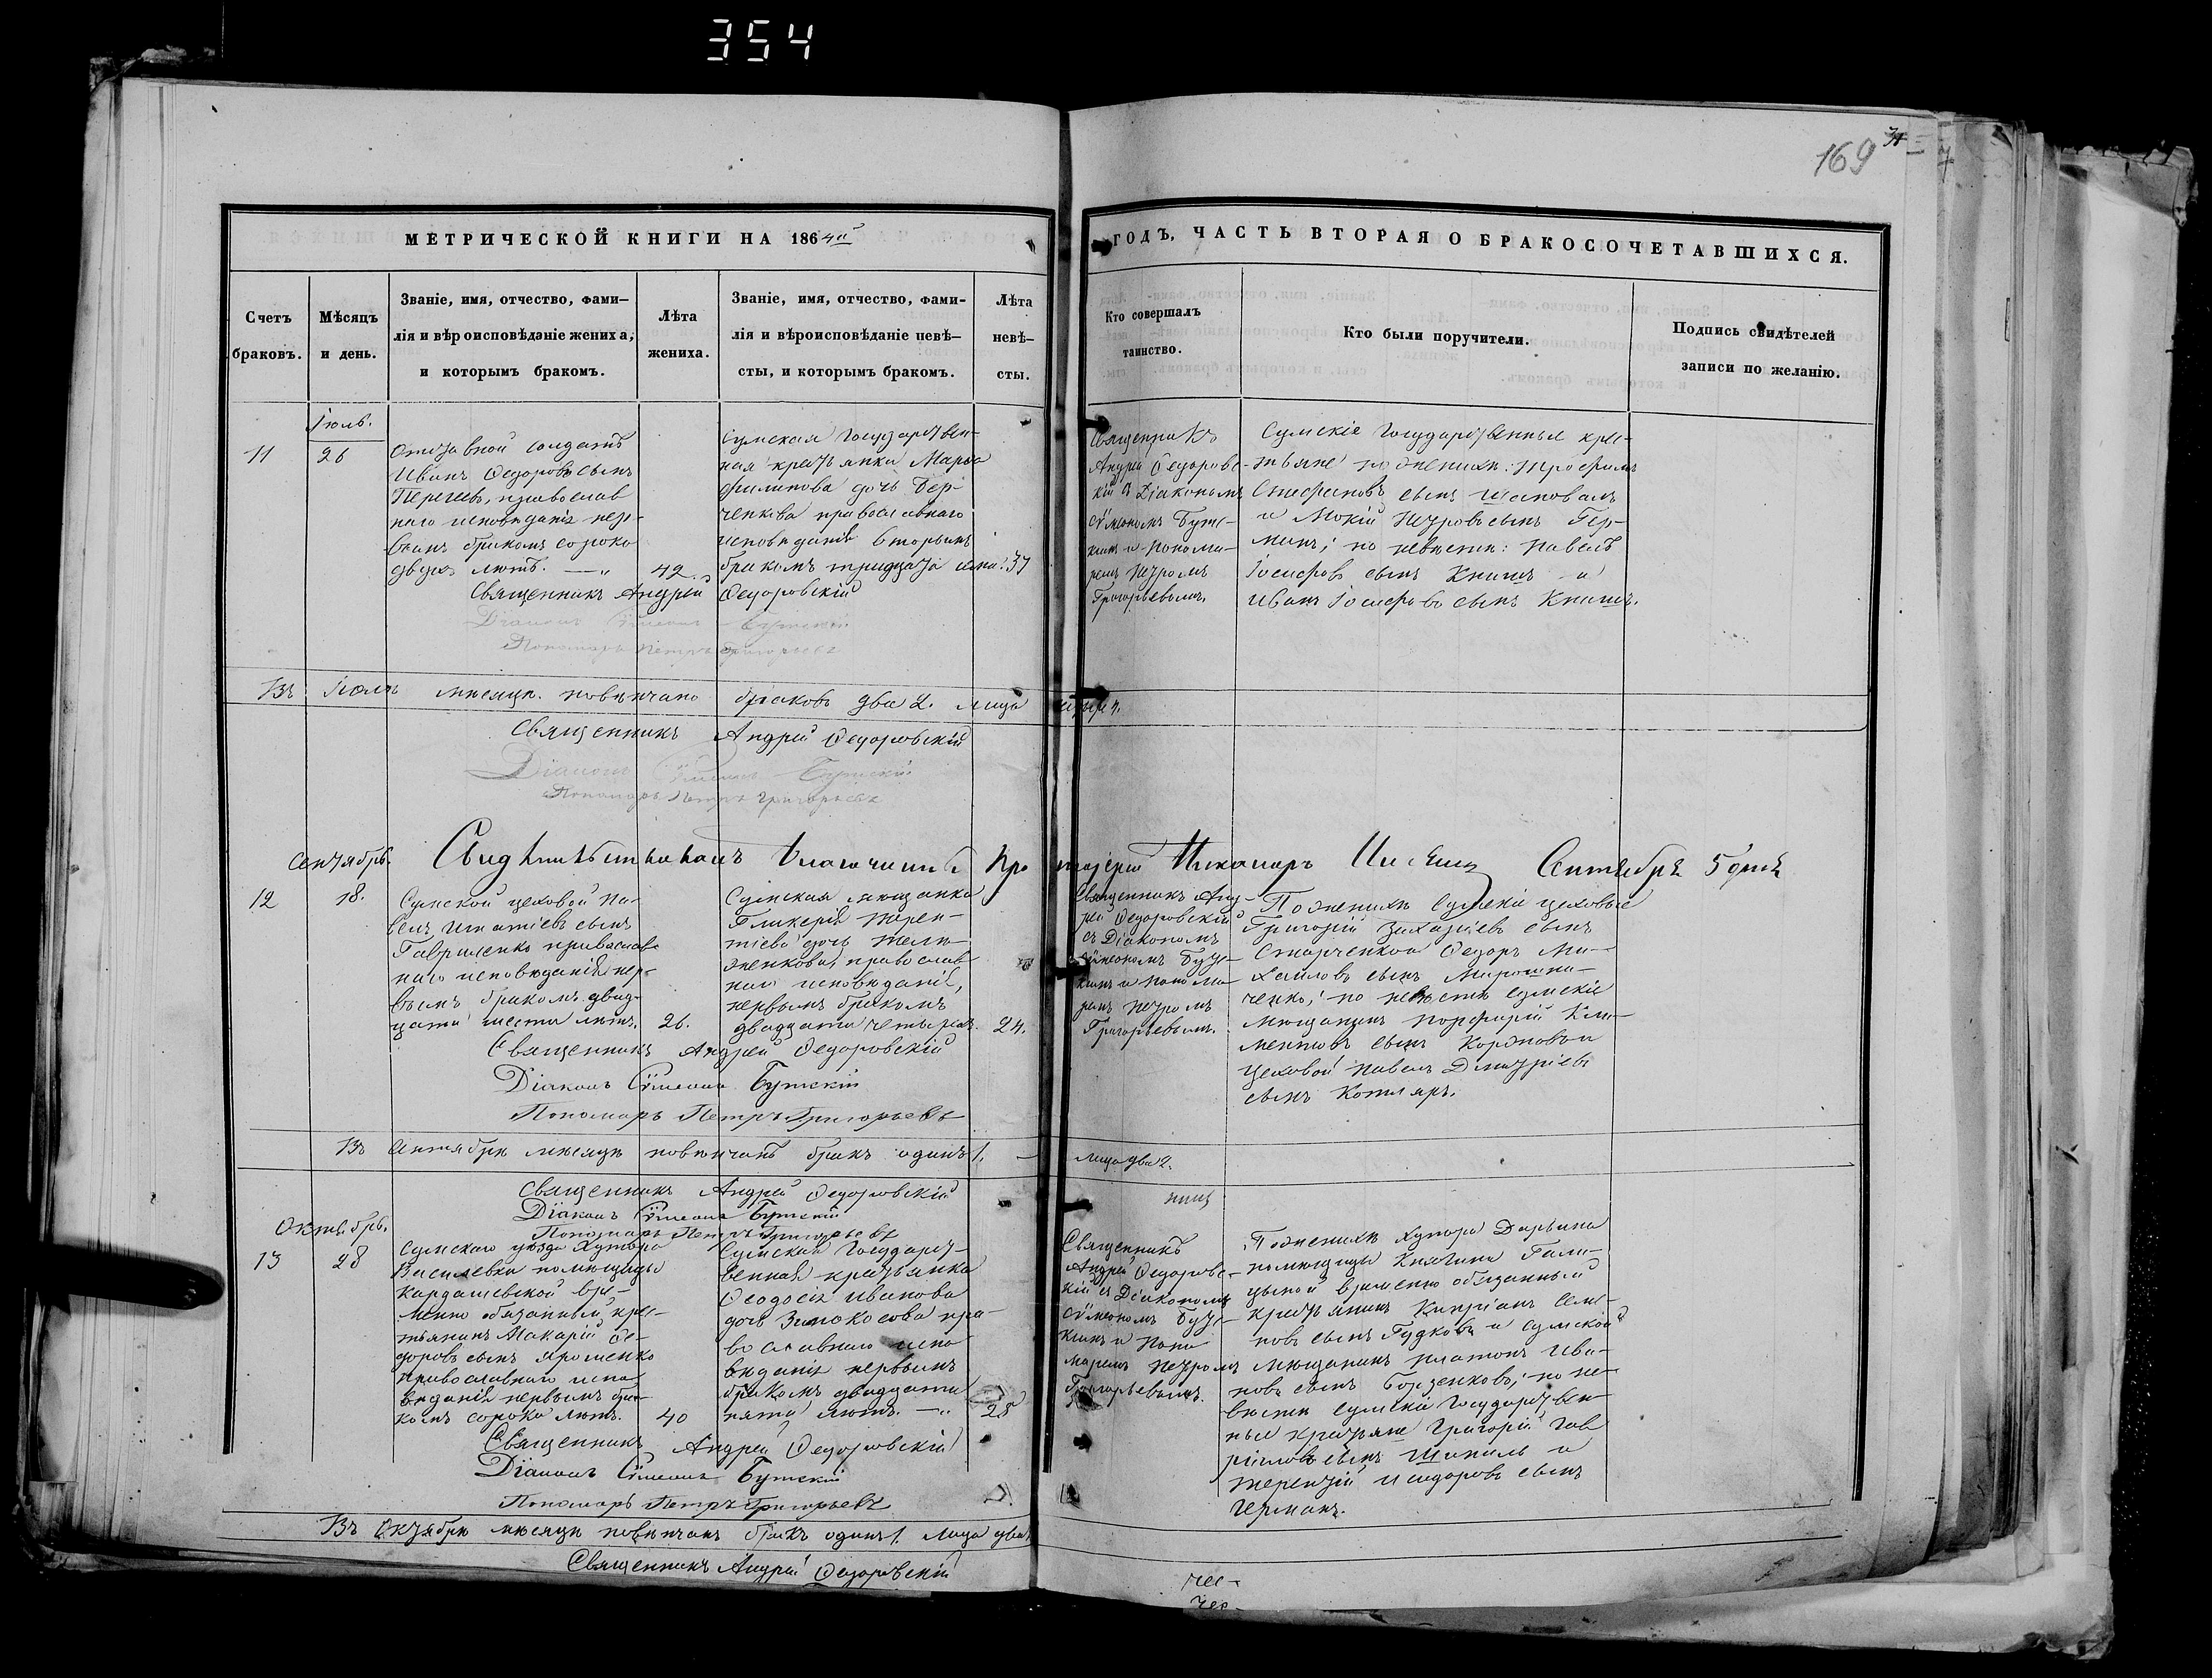 354
169
МЕТРИЧЕСКОЙ КНИГИ НА 1864й
ГОДЪ, ЧАСТЬ ВТОРАЯ О БРАКОСОЧЕТАВШИХСЯ.
Счетъ
браковъ.
Мѣсяцъ
и день.
Званіе, имя, отчество, фами-
лія и вѣроисповѣданіе жениха,
и которымъ бракомъ.
Лѣта
жениха.
Званіе, имя, отчество, фами-
лія и вѣроисповѣданіе невѣ-
сты, и которымъ бракомъ.
Лѣта
невѣ-
сты.
Кто совершалъ
таинство.
Кто были поручители.
Подпись свидѣтелей
записи по желанію.
Іюль.
11
26
Отставной солдатъ
Иванъ Ѳедоровъ сынъ
православ
наго исповѣданія пер-
вымъ бракомъ сорока
двухъ лѣтъ.
42.
Сумская Государствен-
ная крестьянка Марѳа
Филипова дочь Бер-
ченкова православнаго
исповѣданія вторымъ
бракомъ тридцати
37
Священникъ
Андрей Ѳедоровс-
кій съ Діакономъ
Сѵмеономъ Бутс-
кимъ и Понома-
ремъ Петромъ
Григорьевымъ.
Сумскіе Государственные крес-
тьяне по женихѣ: Трофимъ
Стефановъ сынъ Шаповалъ
и Мокій Петровъ сынъ Гер-
манъ; по невѣстѣ: Павелъ
Іосифовъ сынъ Книшъ и
Иванъ Іосифовъ сынъ Книшъ.
Священникъ Андрей Ѳедоровскій
Діаконъ Сѵмеонъ Бутскій
Пономарь Петръ Григорьевъ
Въ Іюлѣ мѣсяцѣ повѣнчано браковъ два 2. лица четыре 4.
Священникъ Андрей Ѳедоровскій
Діаконъ Сѵмеонъ Бутскій
Пономарь Петръ Григорьевъ
Свидѣтельствовалъ Благочинный Протоіерей Никаноръ Сентября 5 дня
Сентябрь.
12
18.
Сумской цеховой Па-
велъ Игнатіевъ сынъ
Гавриленко православ-
наго исповѣданія пер-
вымъ бракомъ двад-
цати шести лѣтъ.
26.
Сумская мѣщанка
Гликерія Терен-
тіева дочь
православ
наго исповѣданія,
первымъ бракомъ
двадцати четырехъ.
24.
Священникъ Анд-
рей Ѳедоровскій
съ Діакономъ
Сѵмеономъ Бутс-
кимъ и Понома-
ремъ Петромъ
Григорьевымъ.
По женихѣ Сумскіе цеховые
Григорій Захаріевъ сынъ
Старченко и Ѳедоръ Ми-
хайловъ сынъ Мирошни-
ченко; по невѣстѣ Сумскіе
мѣщанинъ Порфирій Кли-
ментовъ сынъ Коржовъ и
цеховой Павелъ Дмитріевъ
сынъ Котляръ.
Священникъ Андрей Ѳедоровскій
Діаконъ Сѵмеонъ Бутскій
Пономарь Петръ Григорьевъ
Въ Сентябрѣ мѣсяцѣ повѣнчанъ бракъ одинъ 1. — лица два 2.
Священникъ Андрей Ѳедоровскій
Діаконъ Сѵмеонъ Бутскій
Пономарь Петръ Григорьевъ
Октябрь.
13
28
Сумскаго уѣзда Хутора
Василевки помѣщицы
Кардашевской вре-
менно обязанный крес-
тьянинъ Макарій Ѳе-
доровъ сынъ Яроменко
православнаго испо-
вѣданія первымъ бра-
комъ сорока лѣтъ.
40
Сумская Государст-
венная крестьянка
Ѳеодосія Иванова
дочь Зимокосова пра-
вославнаго испо-
вѣданія первымъ
бракомъ двадцати
пяти лѣтъ.
25
Священникъ
Андрей Ѳедоровс-
кій съ Діакономъ
Сѵмеономъ Бутс-
кимъ и Поно-
маремъ Петромъ
Григорьевымъ.
По женихѣ Хутора Дарьина
помѣщицы Княгини Гали-
цыной временно обязанный
крестьянинъ Кипріанъ Семе-
новъ сынъ Гудковъ и Сумской
мѣщанинъ Платонъ Ива-
новъ сынъ Борзенковъ; по не-
вѣстѣ Сумскіе Государствен-
ные крестьяне Григорій Гав-
ріиловъ сынъ и
Терентій Исидоровъ сынъ
Германъ.
Священникъ Андрей Ѳедоровскій
Діаконъ Сѵмеонъ Бутскій
Пономарь Петръ Григорьевъ
Въ Октябрѣ мѣсяцѣ повѣнчанъ бракъ одинъ 1. лица два
Священникъ Андрей Ѳедоровскій